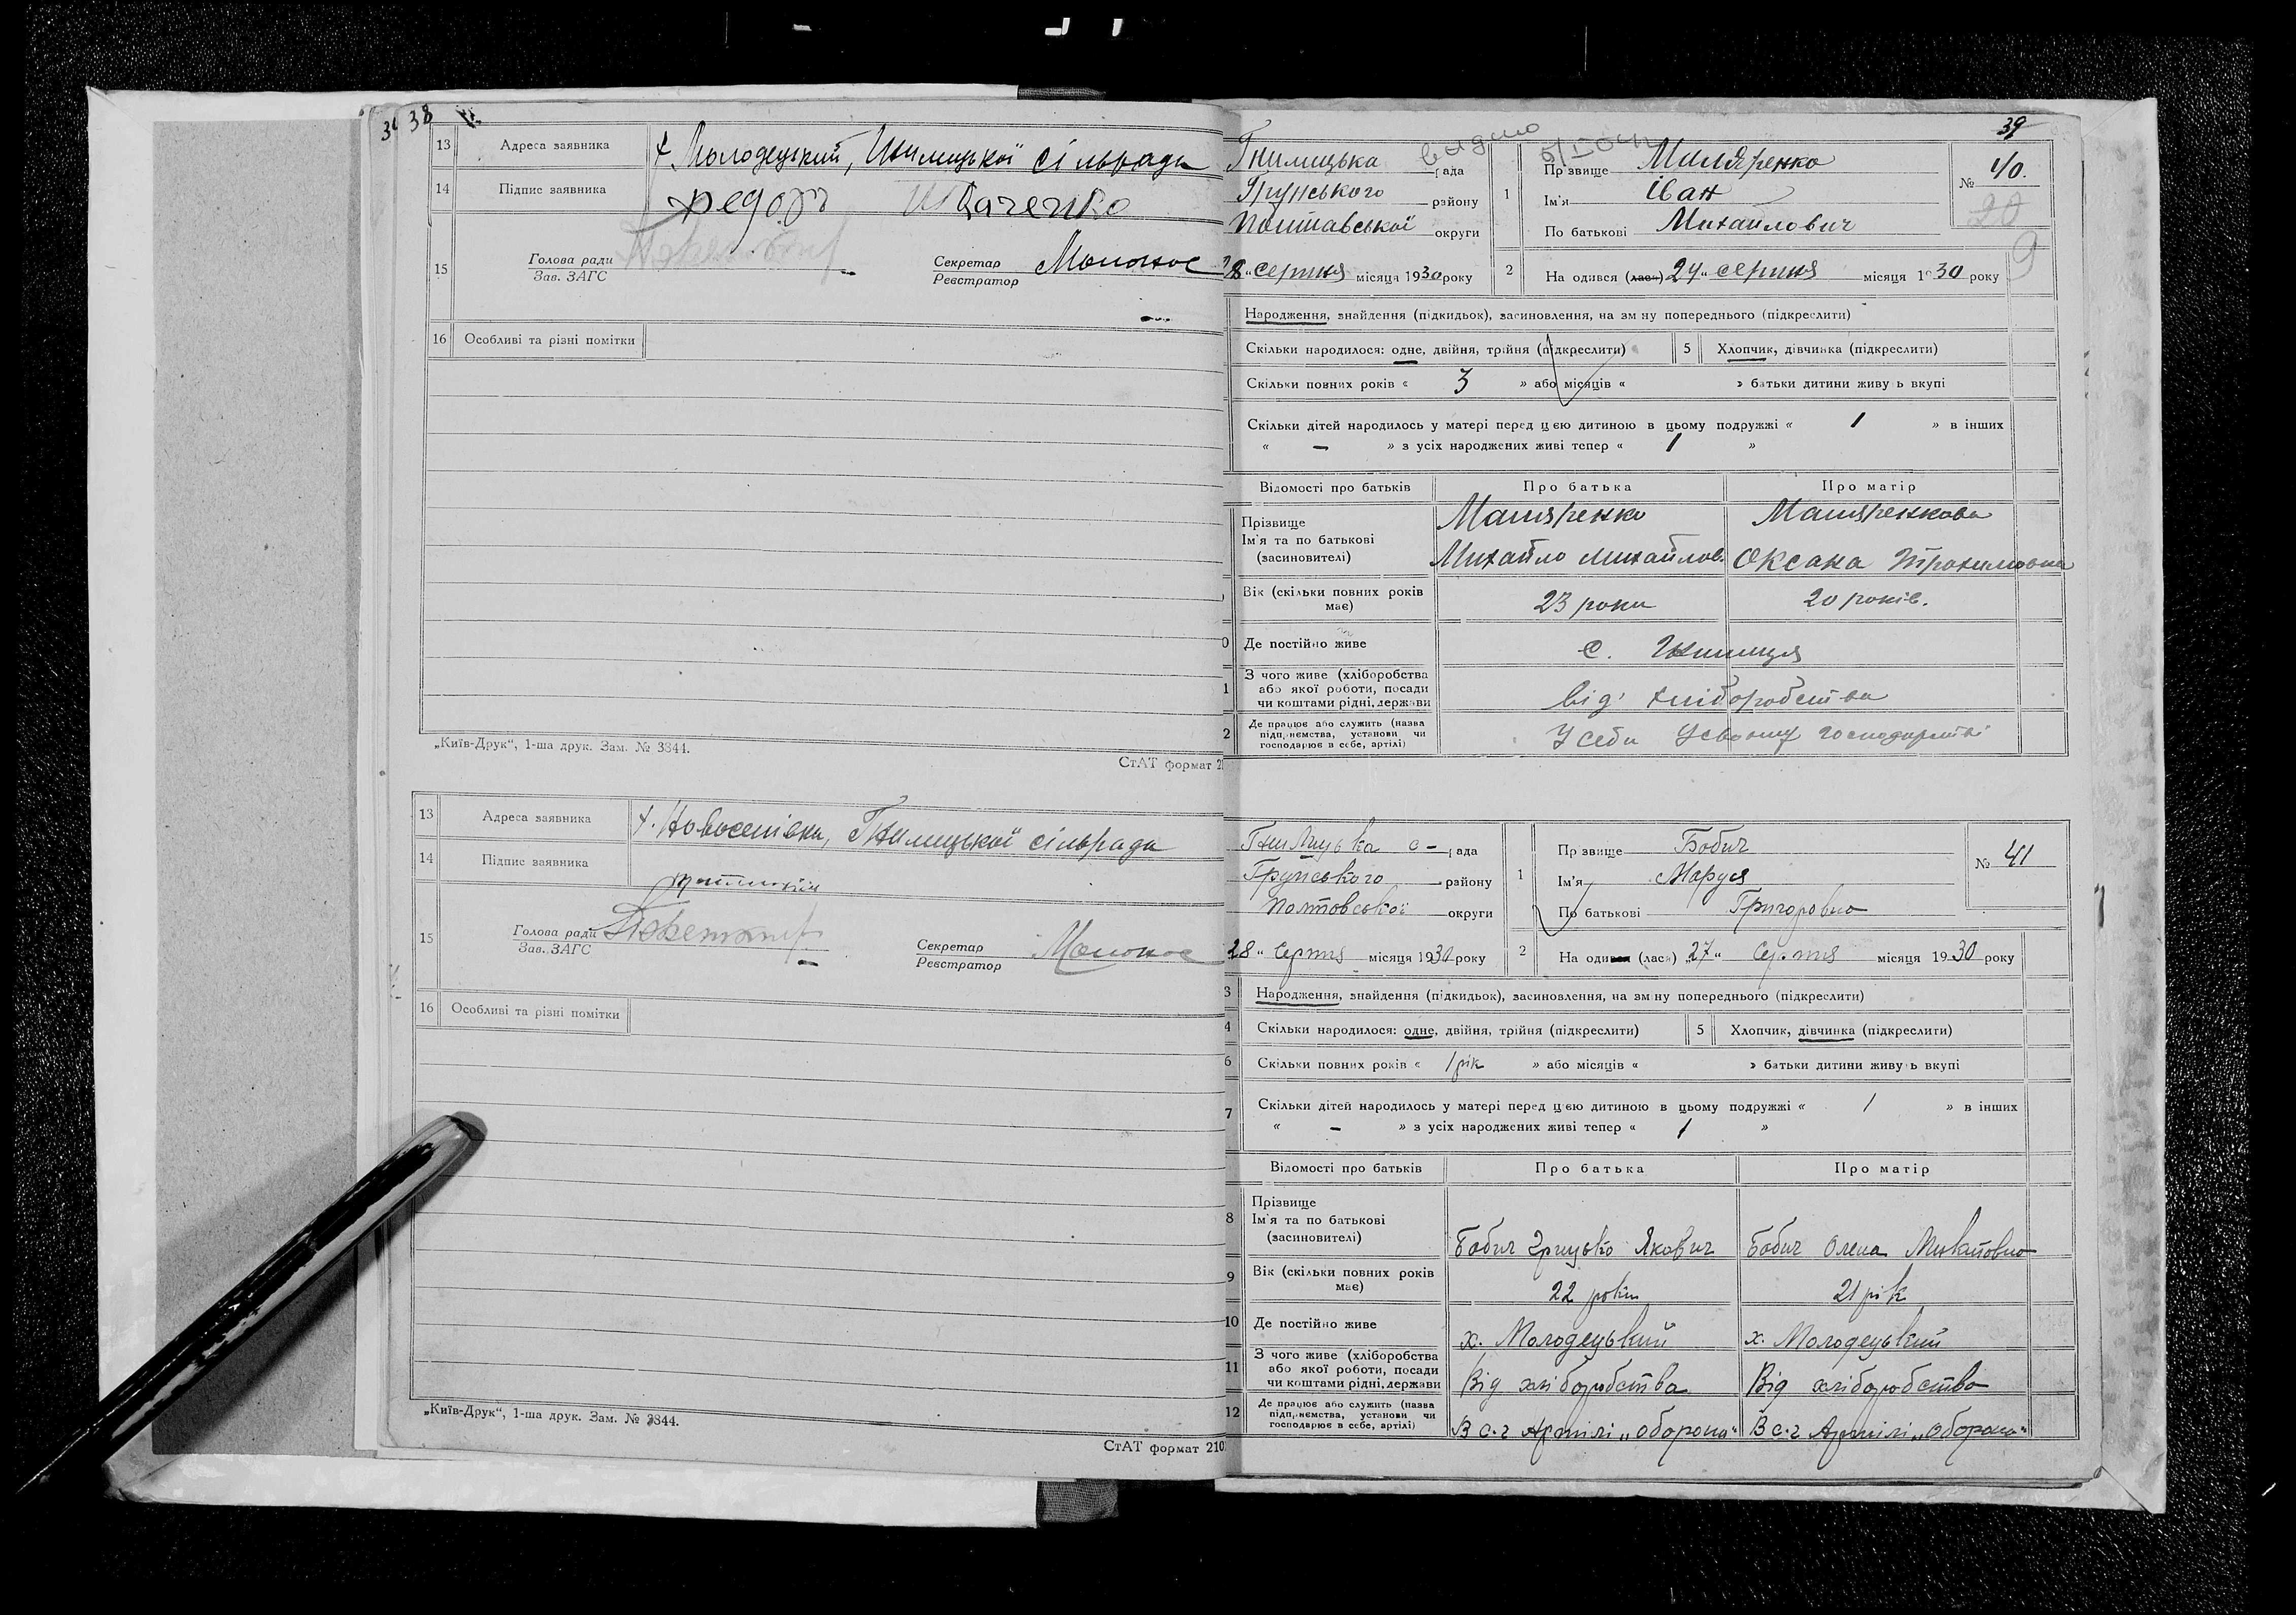 38
13 Адреса заявника х. Молодецький, Гнилицької сільради
14 Підпис заявника Федоръ Ткаченко
15 Голова ради
Зав. ЗАГС
Секретар
Реєстратор
16 Особливі та різні помітки
„Київ-Друк“, 1-ша друк. Зам. № 3344.
СтАТ формат 2
13 Адреса заявника х. Новоселівка, Гнилицької сільради
14 Підпис заявника
15 Голова ради
Зав. ЗАГС
Секретар
Реєстратор
16 Особливі та різні помітки
„Київ-Друк“, 1-ша друк. Зам. № 3344.
СтАТ формат 210
39
Гнилицька рада
Грунського району
Полтавської округи
28 „ серпня місяця 1930 року
1 Прізвище Маляренко
Ім'я Іван
По батькові Михайлович
№ 40.
20
9
2 На одився (лась) 24 „ серпня місяця 1930 року
Народження, знайдення (підкидьок), засиновлення, на зм ну попереднього (підкреслити)
Скільки народилося: одне, двійня, трійня (підкреслити) 5 Хлопчик, дівчинка (підкреслити)
Скільки повних років « 3 » або місяців « » батьки дитини живу ь вкупі
Скільки дітей народилось у матері перед цією дитиною в цьому подружжі « 1 » в інших
« – » з усіх народжених живі тепер « 1 »
Відомості про батьків Про батька Про матір
Прізвище Маляренко Маляренкова
Ім'я та по батькові
(засиновителі) Михайло Михайлов. Оксана Трохимовна
Вік (скільки повних років
має) 23 роки 20 років.
Де постійно живе с. Гнилиця
З чого живе (хліборобства
або якої роботи, посади
чи коштами рідні, держави від хліборобства
Де працює або служить (назва
підприємства, установи чи
господарює в себе, артілі) У себи Усвоиму господарстві
Гнилицька с – рада
Грунського району
Полтовської округи
28 „ Серпня місяця 1930 року
1 Пр звище Бобич
Ім'я Маруся
По батькові Григоровна
№ 41
2 На один (лась) „27 „ Серпня місяця 1930 року
3 Народження, знайдення (підкидьок), засиновлення, на зм ну попереднього (підкреслити)
4 Скільки народилося: одне, двійня, трійня (підкреслити) 5 Хлопчик, дівчинка (підкреслити)
6 Скільки повних років « 1 рік » або місяців « » батьки дитини живу ь вкупі
7 Скільки дітей народилось у матері перед цією дитиною в цьому подружжі « 1 » в інших
« – » з усіх народжених живі тепер « 1 »
Відомості про батьків Про батька Про матір
8 Прізвище
Ім'я та по батькові
(засиновителі) Бобич Грицько Якович Бобич Олена Михайловна
9 Вік (скільки повних років
має) 22 роки 21 рік
10 Де постійно живе х. Молодецький х. Молодецький
11 З чого живе (хліборобства
або якої роботи, посади
чи коштами рідні, держави Від хліборобства Від хліборобства
12 Де працює або служить (назва
підприємства, установи чи
господарює в себе, артілі) В с.г Артілі „оборона“ В с.г Артілі „оборона“